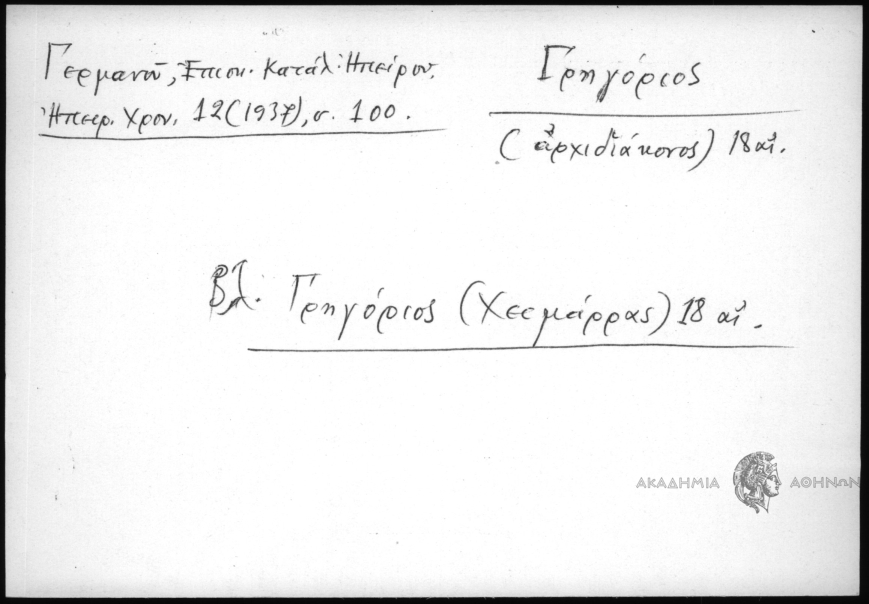 Γερμανοῦ, Ἐπισκ. Κατάλ. Ἠπείρου,
Ἠπειρ. Χρον. 12 (1937), σ. 100.
Γρηγόριος
(ἀρχιδιάκονος) 18 αἰ.
Βλ. Γρηγόριος (Χειμάρρας) 18 αἰ.
ΑΚΑΔΗΜΙΑ ΑΘΗΝΩΝ